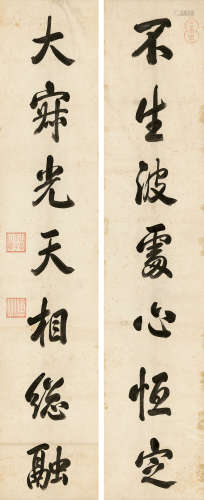 不生波處心恒定
大寂光天相総融